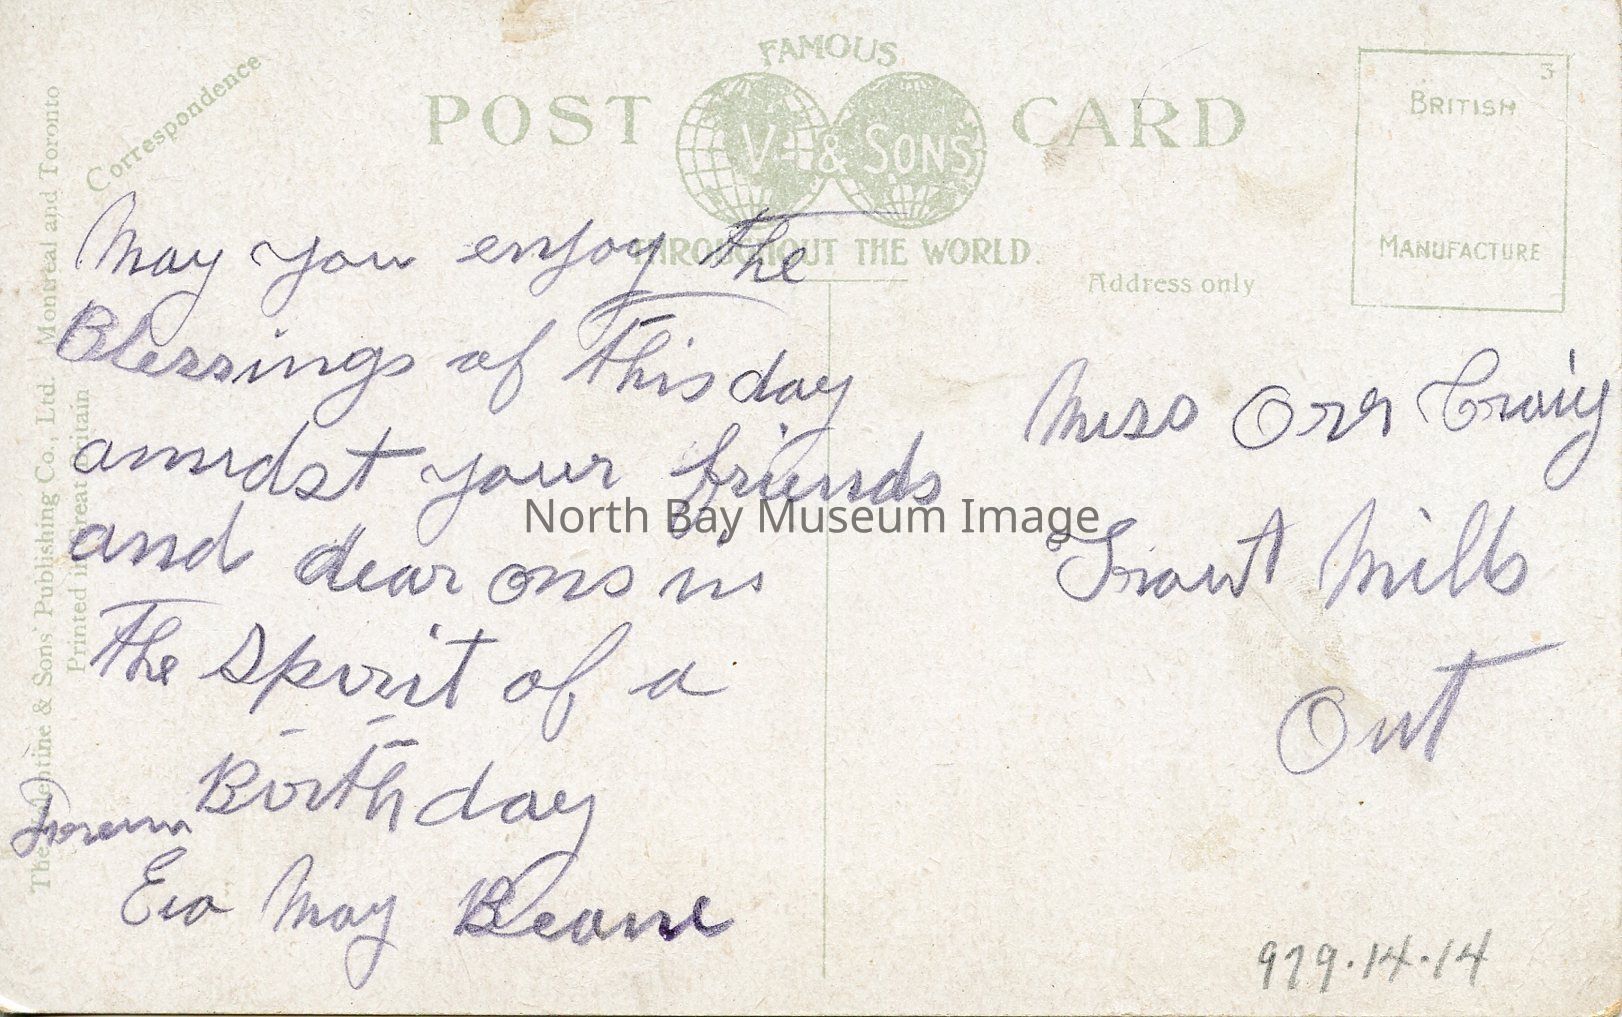 FAMOUS
POST CARD
V & SONS
THROUGHOUT THE WORLD.
3
BRITISH
MANUFACTURE
Correspondence
Address only
The Valentine & Sons' Publishing Co., Ltd. Montreal and Toronto
Printed in Great Britain
May you enjoy the
Blessings of this day
amidst your friends
and dear ons in
the spirit of a
Birthday
From
Eva May Beane
Miss Orr Craig
Trout Mills
Ont
979.14.14
North Bay Museum Image